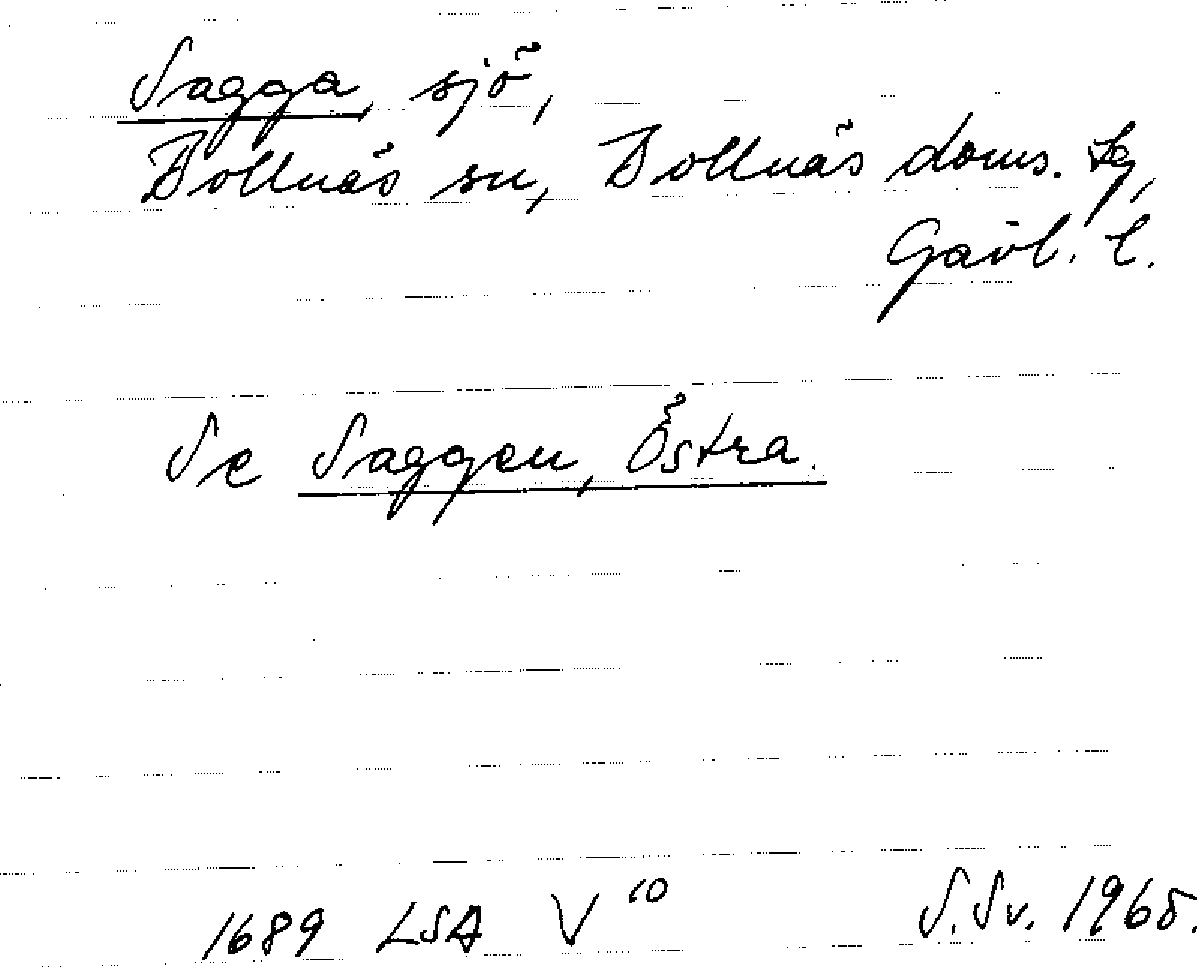 Sagga, sjö,
Bollnäs sn, Bollnäs doms. tg,
Gävl. l.
Se Saggen, Östra.
1689 LSA V¹⁰ S. Sv. 1965.